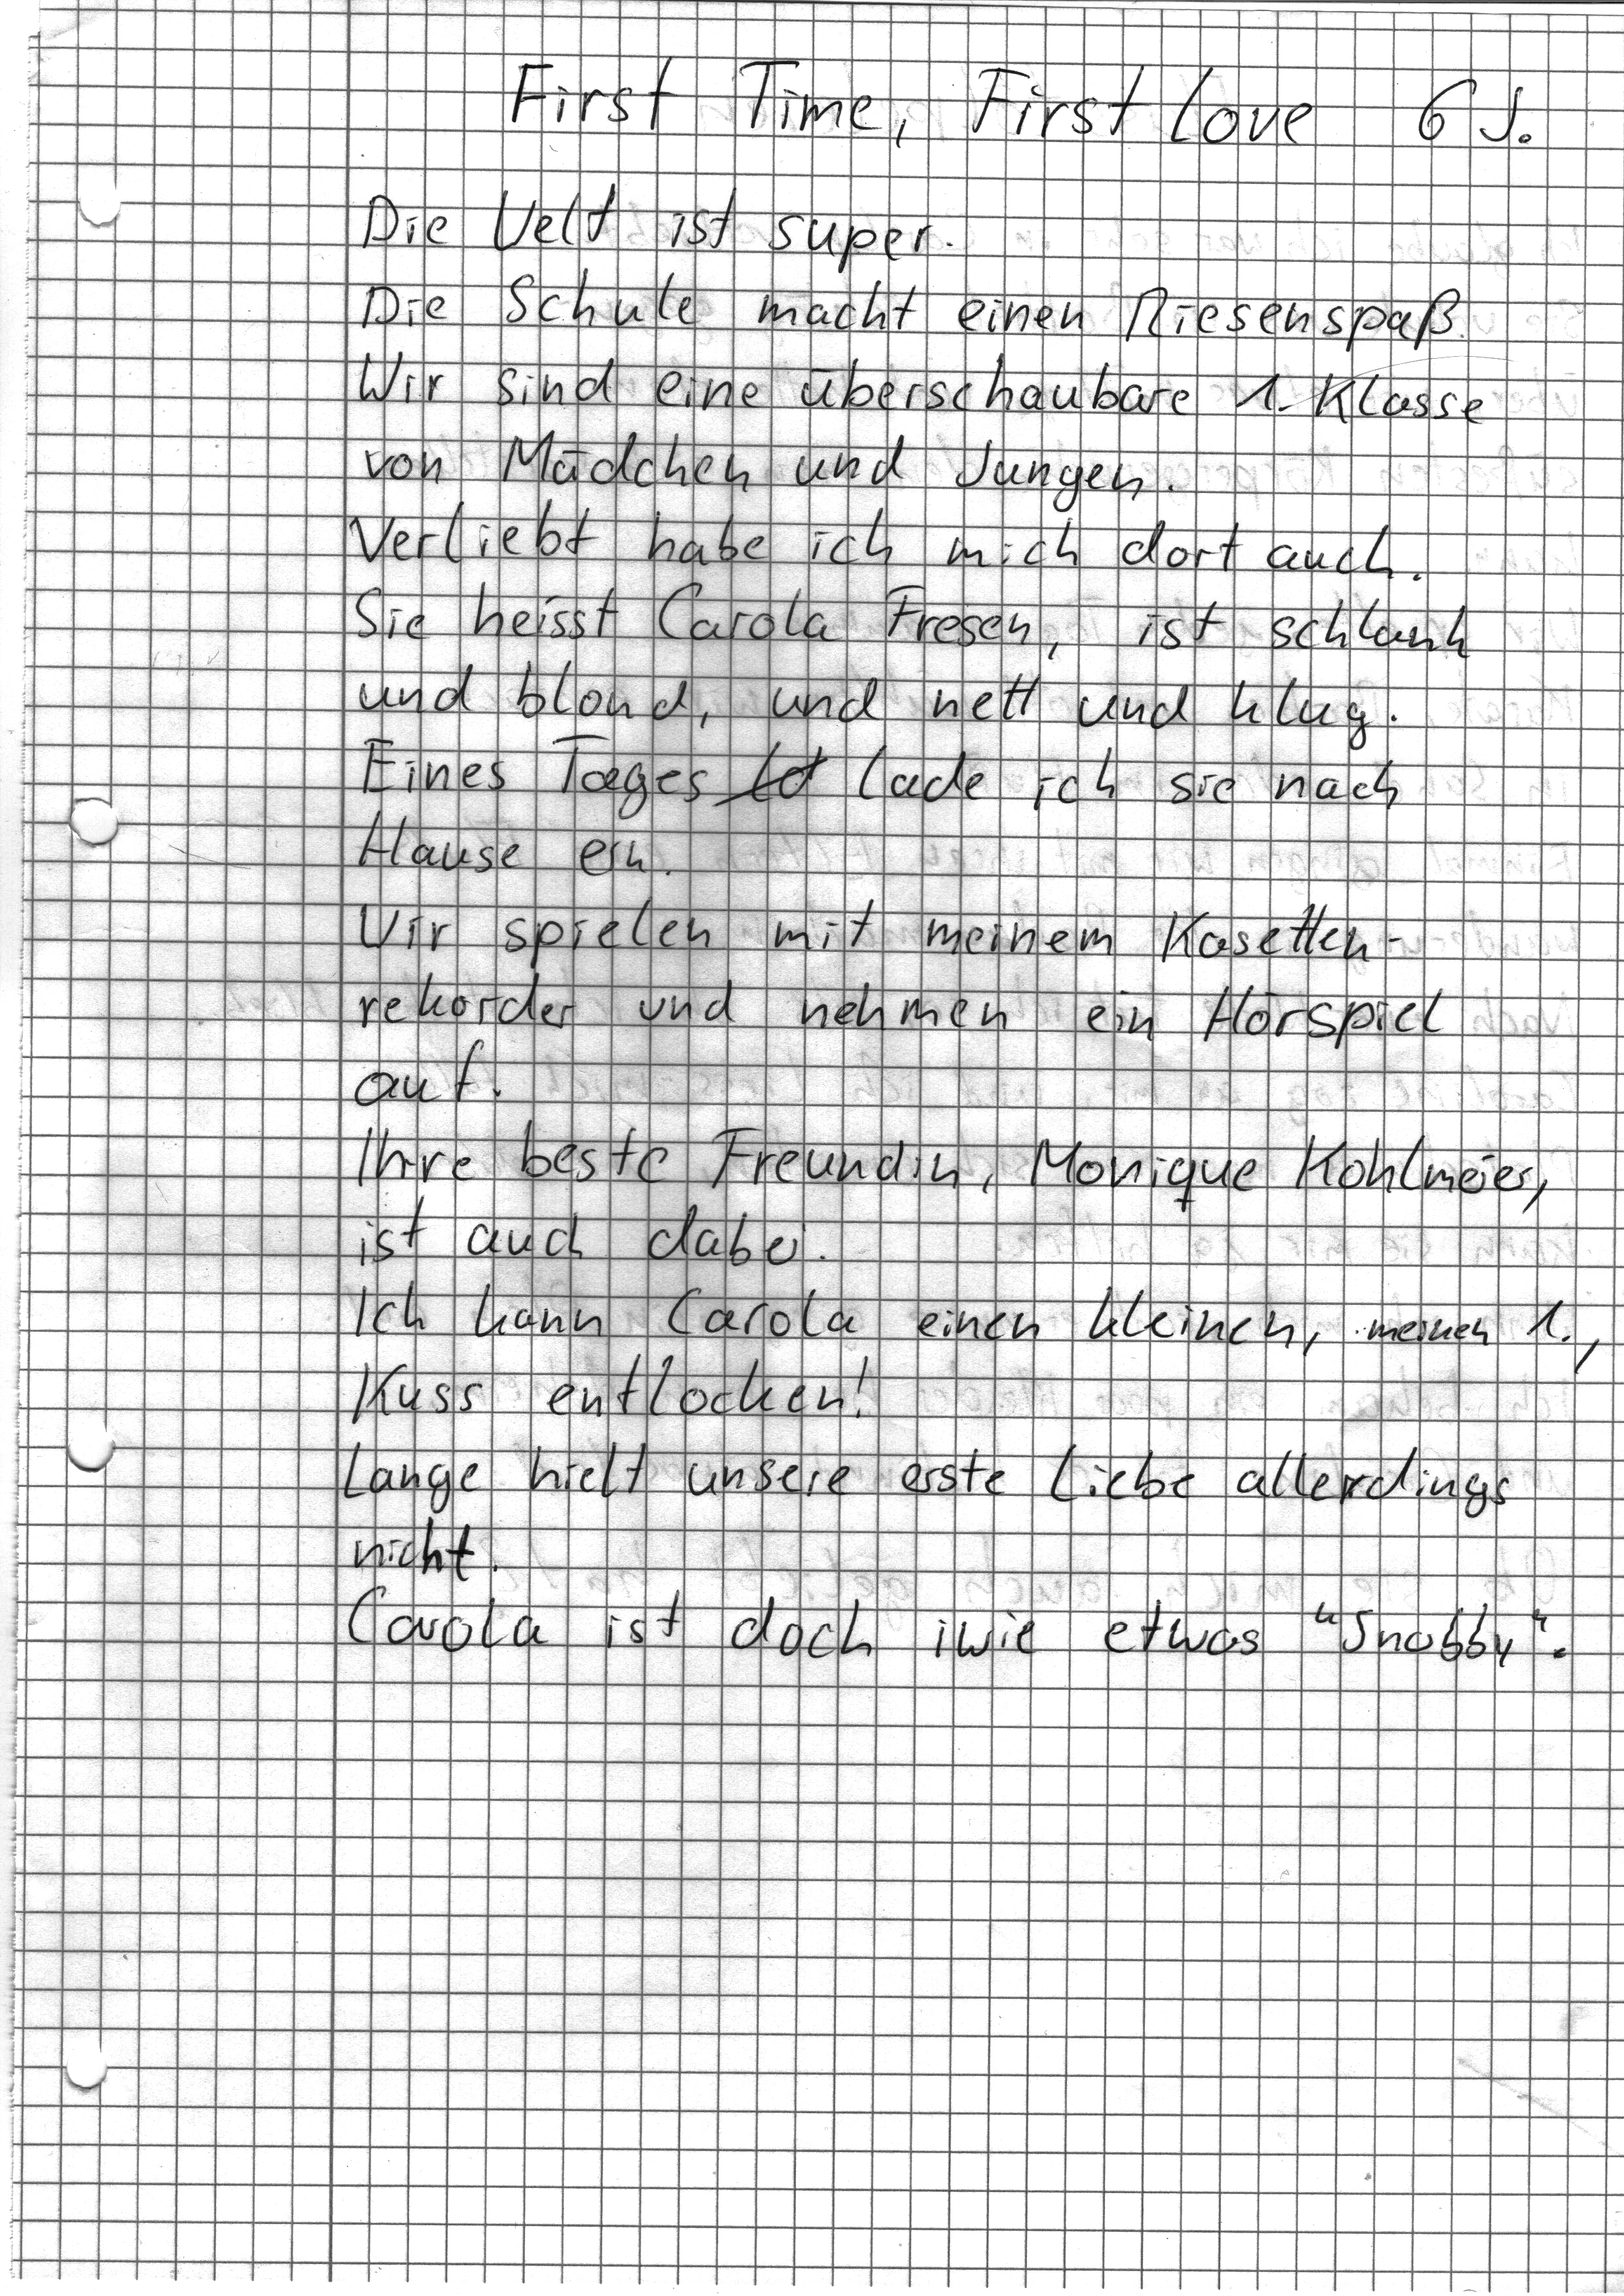 First Time, First Love 6 J.
Die Welt ist super.
Die Schule macht einen Riesenspaß.
Wir sind eine überschaubare 1. Klasse
von Mädchen und Jungen.
Verliebt habe ich mich dort auch.
Sie heisst Carola Fresen, ist schlank
und blond, und nett und klug.
Eines Tages lade ich sie nach
Hause ein.
Wir spielen mit meinem Kasetten-
rekorder und nehmen ein Hörspiel
auf.
Ihre beste Freundin, Monique Kohlmeier,
ist auch dabei.
Ich kann Carola einen kleinen, meinen 1.,
Kuss entlocken!
Lange hielt unsere erste Liebe allerdings
nicht.
Carola ist doch iwie etwas "Snobby".